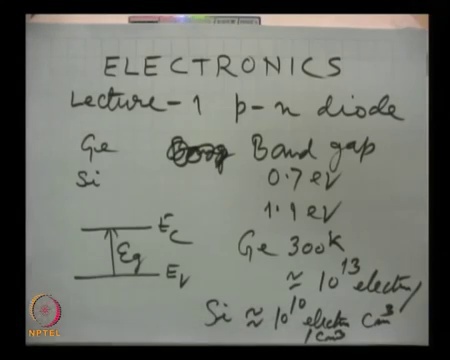 ELECTRONICS
Lecture-1 p-n diode
Ge Band gap
Si 0.7 ev
1.1 ev
Ec
Eg
Ev
Ge 300k
≈ 10^13 electron/cm^3
Si ≈ 10^10 electron/cm^3
NPTEL